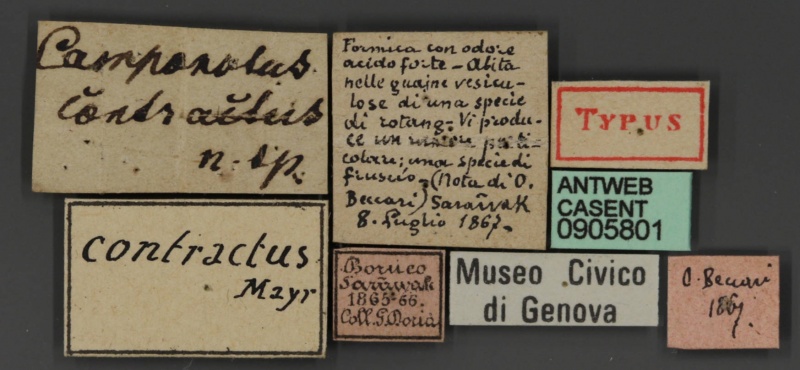 Camponotus
contractus
n. sp.
Formica con odore
acido forte - Abita
nelle guajne vesicu-
lose di una specie
di rotang - Vi produ-
ce un rumore parti-
colare; una specie di
fruscio - (Nota di O.
Beccari) Saràwak
8. Luglio 1867.
TYPUS
ANTWEB
CASENT
0905801
contractus
Mayr
Borneo
Saràwak
1865-66.
Coll. G. Doria
Museo Civico
di Genova
O. Beccari
1867.